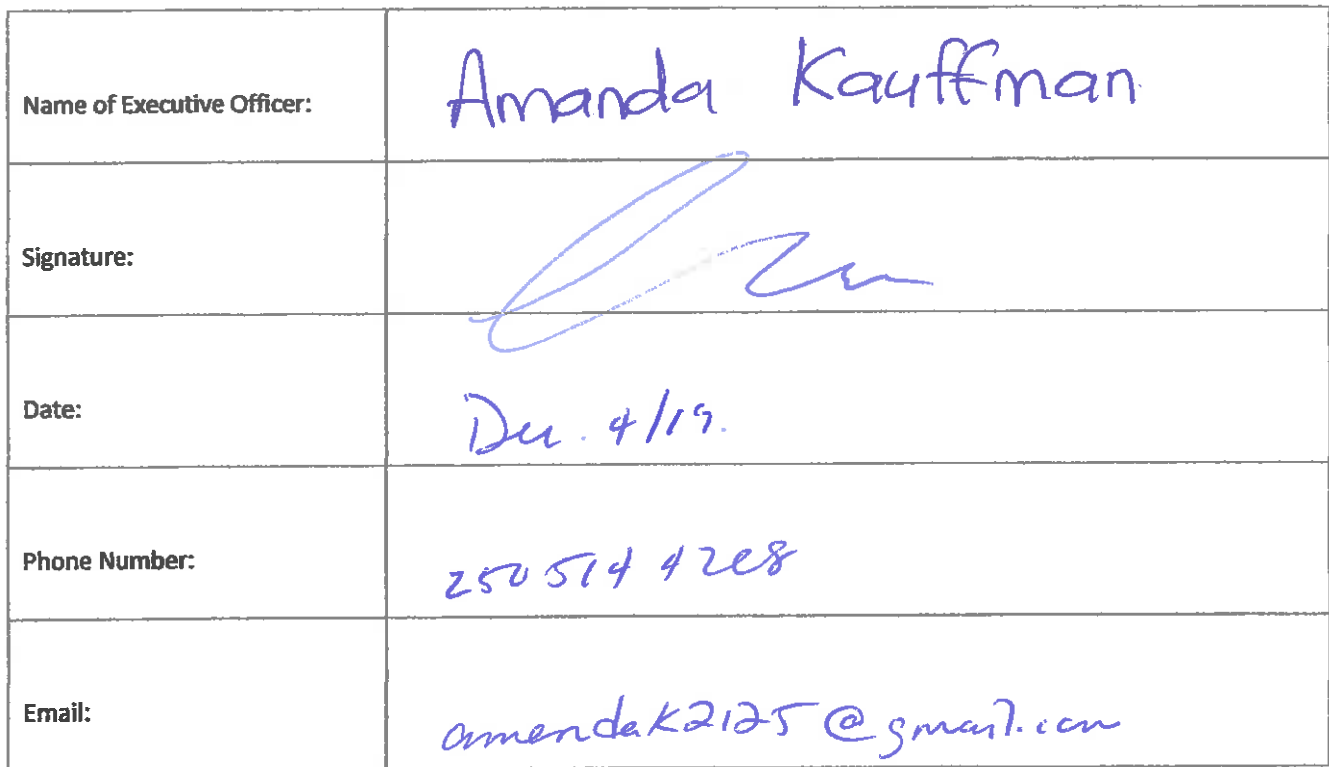 Name of Executive Officer: Amanda Kauffman
Signature:
Date: Dec. 4/19.
Phone Number: 250 514 4208
Email: amandak2125@gmail.com